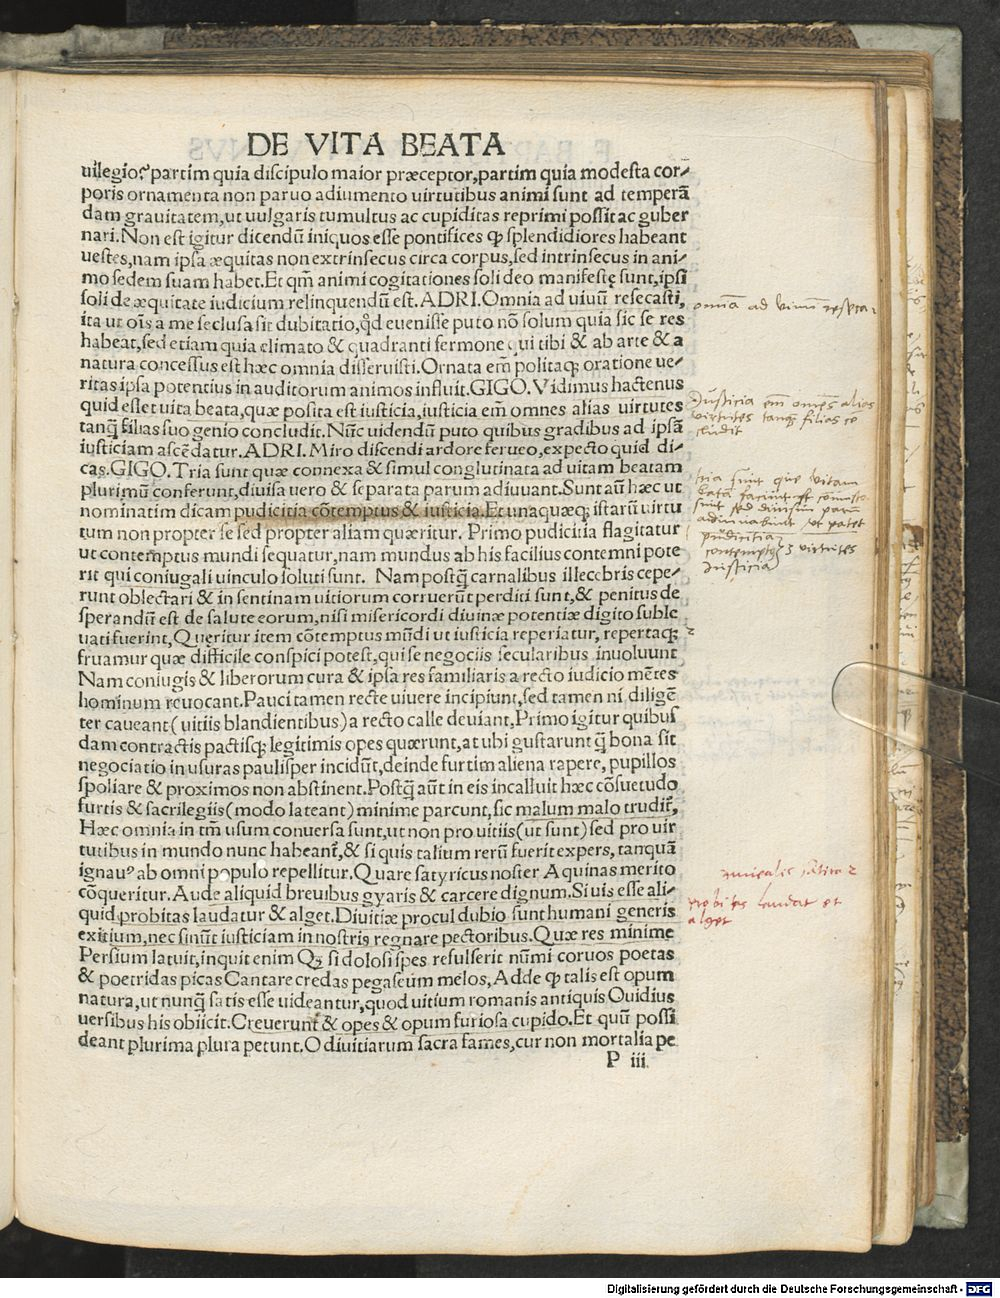 DE VITA BEATA
uilegioꝝ partim quia discipulo maior præceptor,partim quia modesta cor⸗
poris ornamenta non paruo adiumento uirtutibus animi sunt ad temperā
dam grauitatem,ut uulgaris tumultus ac cupiditas reprimi possit ac guber
nari.Non est igitur dicendū iniquos esse pontifices ꝙ splendidiores habeant
uestes,nam ipsa æquitas non extrinsecus circa corpus,sed intrinsecus in ani⸗
mo sedem suam habet.Et qm̄ animi cogitationes soli deo manifestę sunt,ipsi
soli de æquitate iudicium relinquendū est.ADRI.Omnia ad uiuū resecasti,
ita ut oīs a me seclusa sit dubitatio,qd̄ euenisse puto nō solum quia sic se res
habeat,sed etiam quia elimato & quadranti sermone qui tibi & ab arte & a
natura concessus est hæc omnia disseruisti.Ornata em̄ politaqꝫ oratione ue⸗
ritas ipsa potentius in auditorum animos influit.GIGO.Vidimus hactenus
quid esset uita beata,quæ posita est iusticia,iusticia em̄ omnes alias uirtutes
tanq̄ filias suo genio concludit.Nūc uidendū puto quibus gradibus ad ipsā
iusticiam ascēdatur.ADRI.Miro discendi ardore ferueo,expecto quid di⸗
cas.GIGO.Tria sunt quæ connexa & simul conglutinata ad uitam beatam
plurimū conferunt,diuisa uero & separata parum adiuuant.Sunt aūt hæc ut
nominatim dicam pudicitia cōtemptus & iusticia.Et unaquæqꝫ istarū uirtu
tum non propter se sed propter aliam quæritur. Primo pudicitia flagitatur
ut contemptus mundi sequatur,nam mundus ab his facilius contemni pote
rit qui coniugali uinculo soluti sunt. Nam postq̄ carnalibus illecebris cepe⸗
runt oblectari & in sentinam uitiorum corruerūt perditi sunt,& penitus de
sperandū est de salute eorum,nisi misericordi diuinæ potentiæ digito suble
uati fuerint,Quęritur item cōtemptus mūdi ut iusticia reperiatur, repertaqꝫ
fruamur quæ difficile conspici potest,qui se negociis secularibus inuoluunt
Nam coniugis & liberorum cura & ipsa res familiaris a recto iudicio mētes
hominum reuocant.Pauci tamen recte uiuere incipiunt,sed tamen ni diligē
ter caueant(uitiis blandientibus)a recto calle deuiant,Primo igitur quibus
dam contractis pactisqꝫ legitimis opes quærunt,at ubi gustarunt q̄ bona sit
negociatio in usuras paulisper incidūt,deinde furtim aliena rapere, pupillos
spoliare & proximos non abstinent.Postq̄ aūt in eis incalluit hæc cōsuetudo
furtis & sacrilegiis(modo lateant)minime parcunt,sic malum malo truditʳ,
Hæc omnia in tm̄ usum conuersa sunt,ut non pro uitiis(ut sunt)sed pro uir
tutibus in mundo nunc habeant̄,& si quis talium rerū fuerit expers, tanquā
ignauꝰ ab omni populo repellitur.Quare satyricus noster Aquinas merito
cōqueritur.Aude aliquid breuibus gyaris & carcere dignum.Si uis esse ali⸗
quid,probitas laudatur & alget.Diuitiæ procul dubio sunt humani generis
exitium,nec sinūt iusticiam in nostris regnare pectoribus.Quæ res minime
Persium latuit,inquit enim Qꝫ si dolosi spes refulserit nūmi coruos poetas
& poetridas picas Cantare credas pegaseum melos,Adde ꝙ talis est opum
natura,ut nunq̄ satis esse uideantur,quod uitium romanis antiquis Ouidius
uersibus his obiicit.Creuerunt & opes & opum furiosa cupido.Et quū possi
deant plurima plura petunt.O diuitiarum sacra fames,cur non mortalia pe
P iii
omīa ad vivum
Justicia em̄ omnes alias
virtutes tanqꝫ filias co
cludit
tria sunt que vitam
beatā faciunt
sunt sed divisim parum
adiuvabunt ut patet
pudicitia
contemptꝰ 3 virtutes
Justicia
probitas laudat et
alget
Digitalisierung gefördert durch die Deutsche Forschungsgemeinschaft - DFG